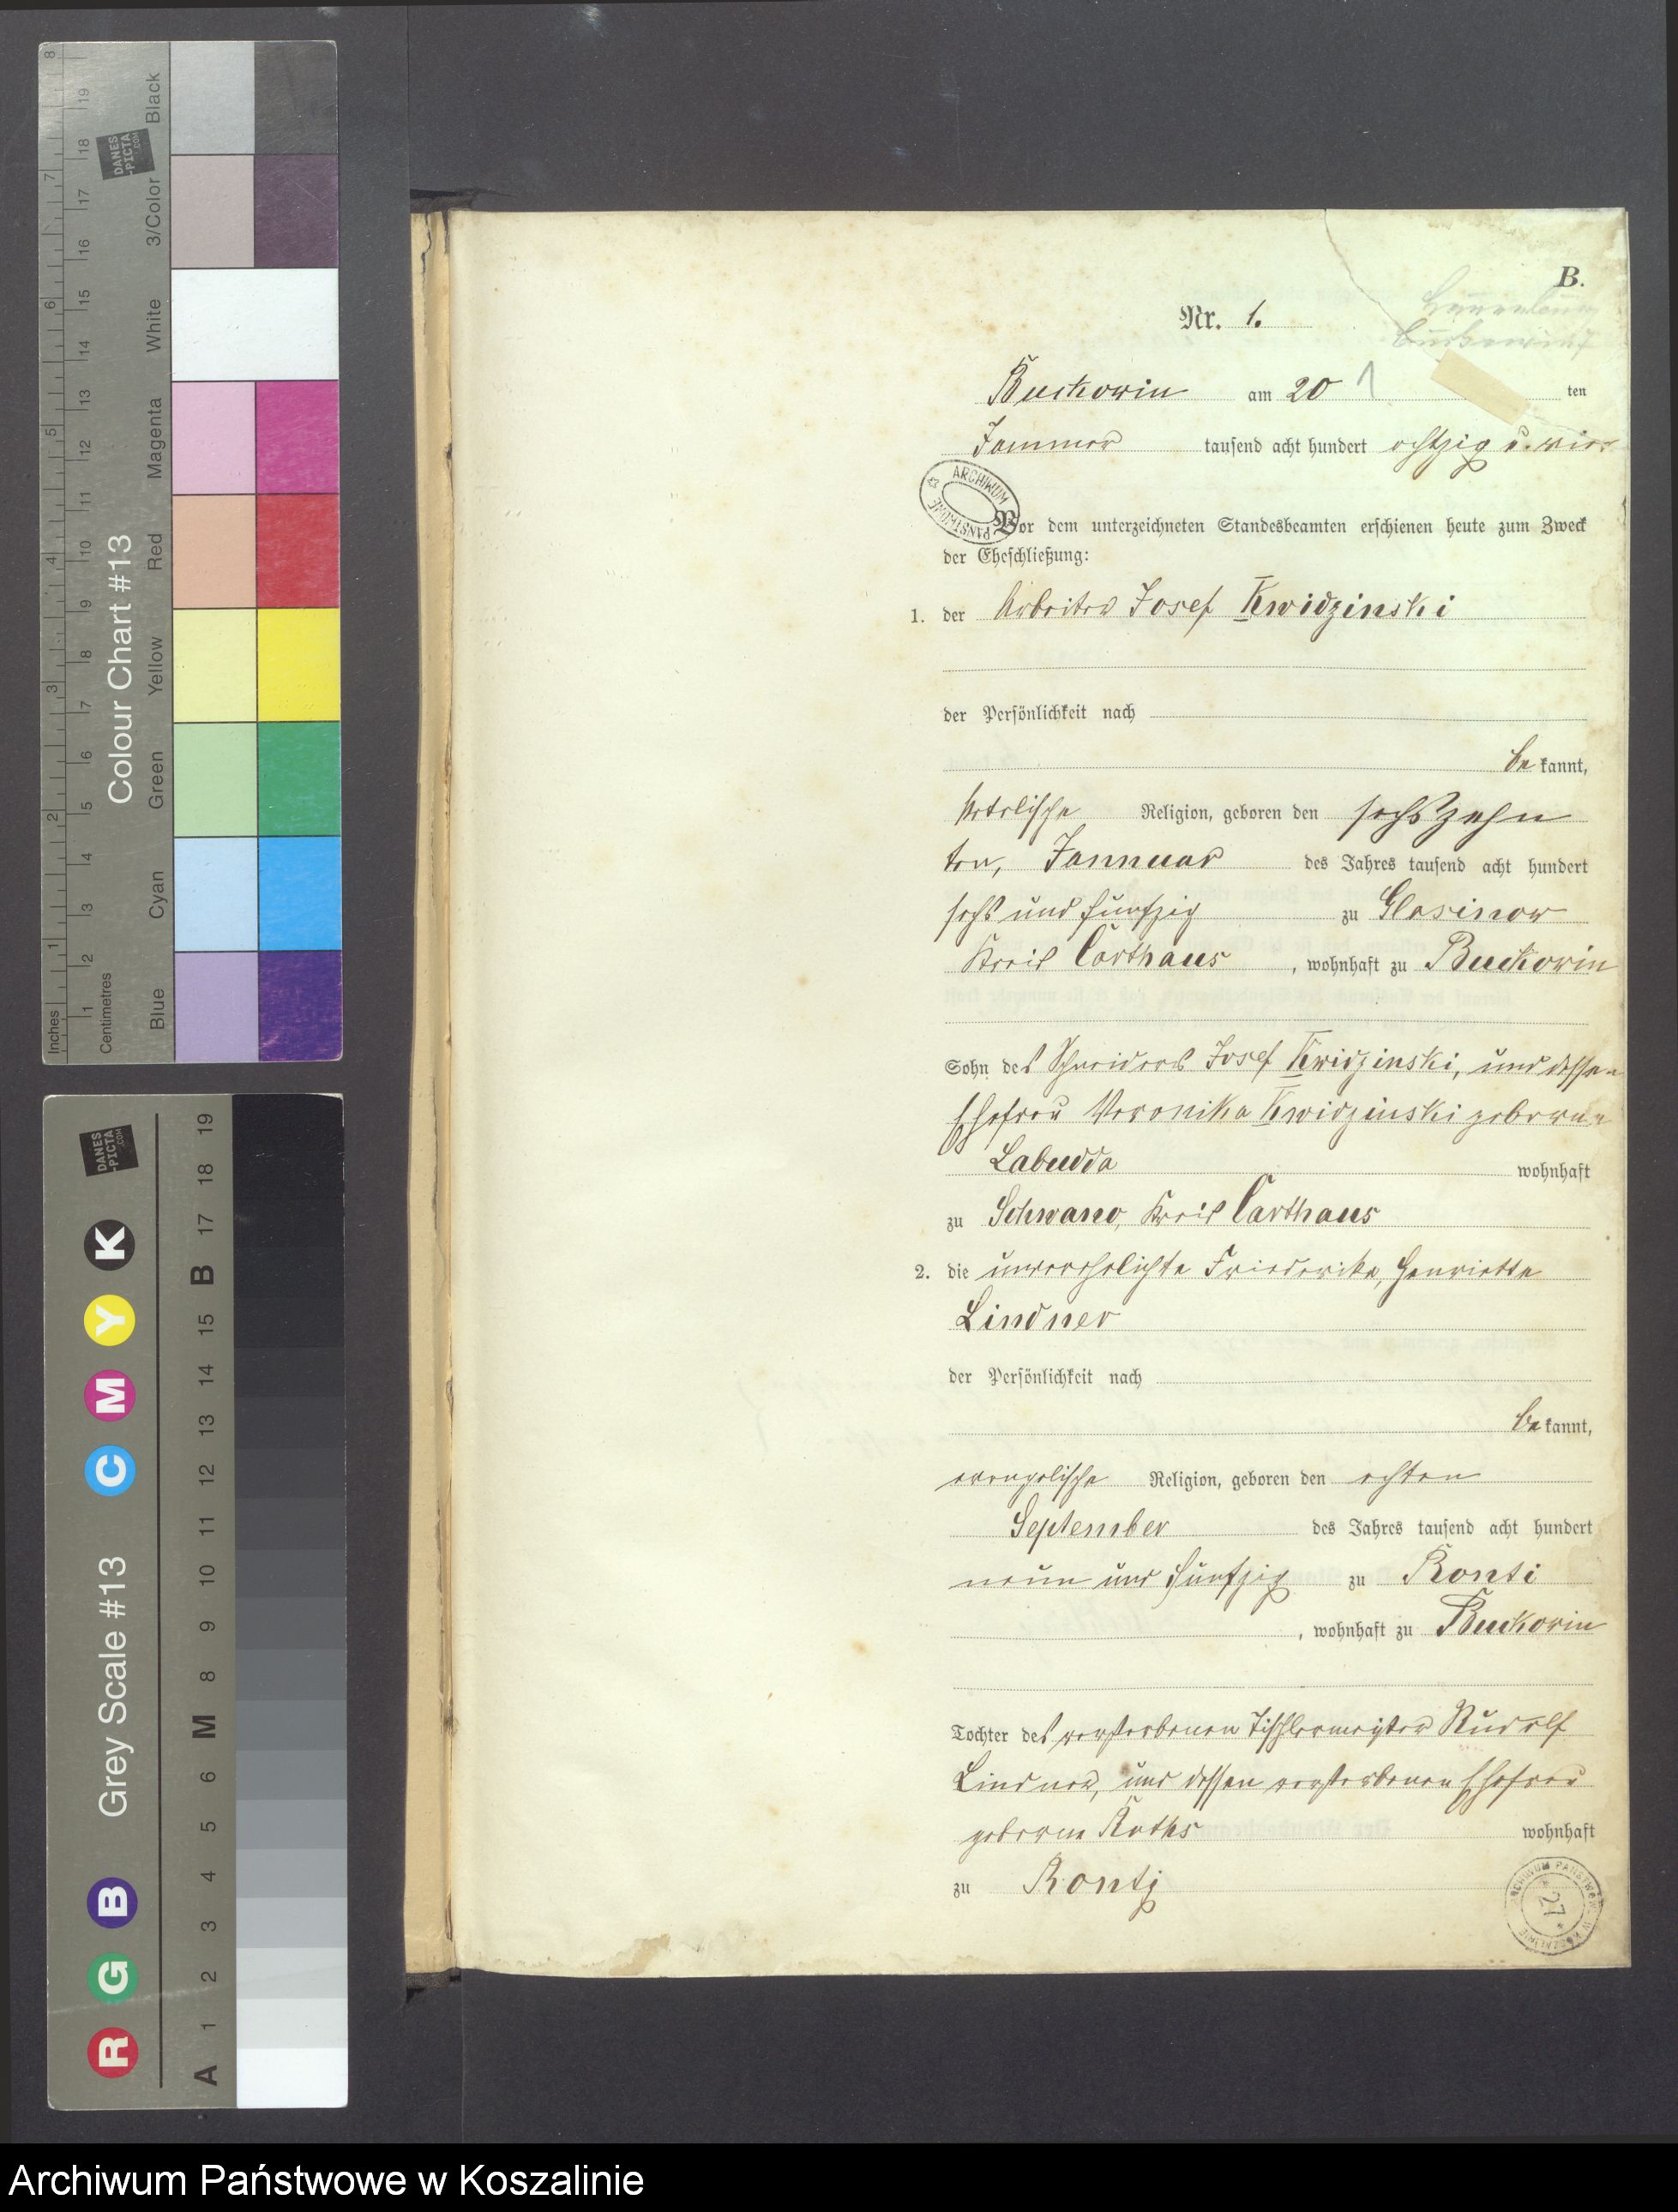 B.
Nr. 1.
Buckowin am 20 ten
Januar tausend acht hundert achtzig u. vier
Vor dem unterzeichneten Standesbeamten erschienen heute zum Zweck
der Eheschließung:
1. der Arbeiter Josef Kwidzinski
der Persönlichkeit nach
be kannt,
katolische Religion, geboren den sechszehn
ten, Januar des Jahres tausend acht hundert
sechs und fünfzig zu Glasinow
Kreis Carthaus, wohnhaft zu Buckowin
Sohn des Schneiders Josef Kwidzinski, und dessen
Ehefrau Veronika Kwidzinski geborene
Labudda wohnhaft
zu Schwano, Kreis Carthaus
2. die unverehelichte Friederike, Henriette
Lindner
der Persönlichkeit nach
be kannt,
evangelische Religion, geboren den achten
September des Jahres tausend acht hundert
neun und fünfzig zu Ronti
, wohnhaft zu Buckowin
Tochter des verstorbenen Tischlermeister Rudolf
Lindner, und dessen verstorbenen Ehefrau
geborene Raths wohnhaft
zu Rontj
ARCHIWUM PAŃSTWOWE
ARCHIWUM PAŃSTWOWE W KOSZALINIE
27
Colour Chart #13
Blue Cyan Green Yellow Red Magenta White 3/Color Black
Inches 1 2 3 4 5 6 7 8
Centimetres 1 2 3 4 5 6 7 8 9 10 11 12 13 14 15 16 17 18 19
DANES
-PICTA
.COM
Grey Scale #13
R G B C M Y K
A 1 2 3 4 5 6 M 8 9 10 11 12 13 14 15 B 17 18 19
DANES
-PICTA
.COM
Archiwum Państwowe w Koszalinie